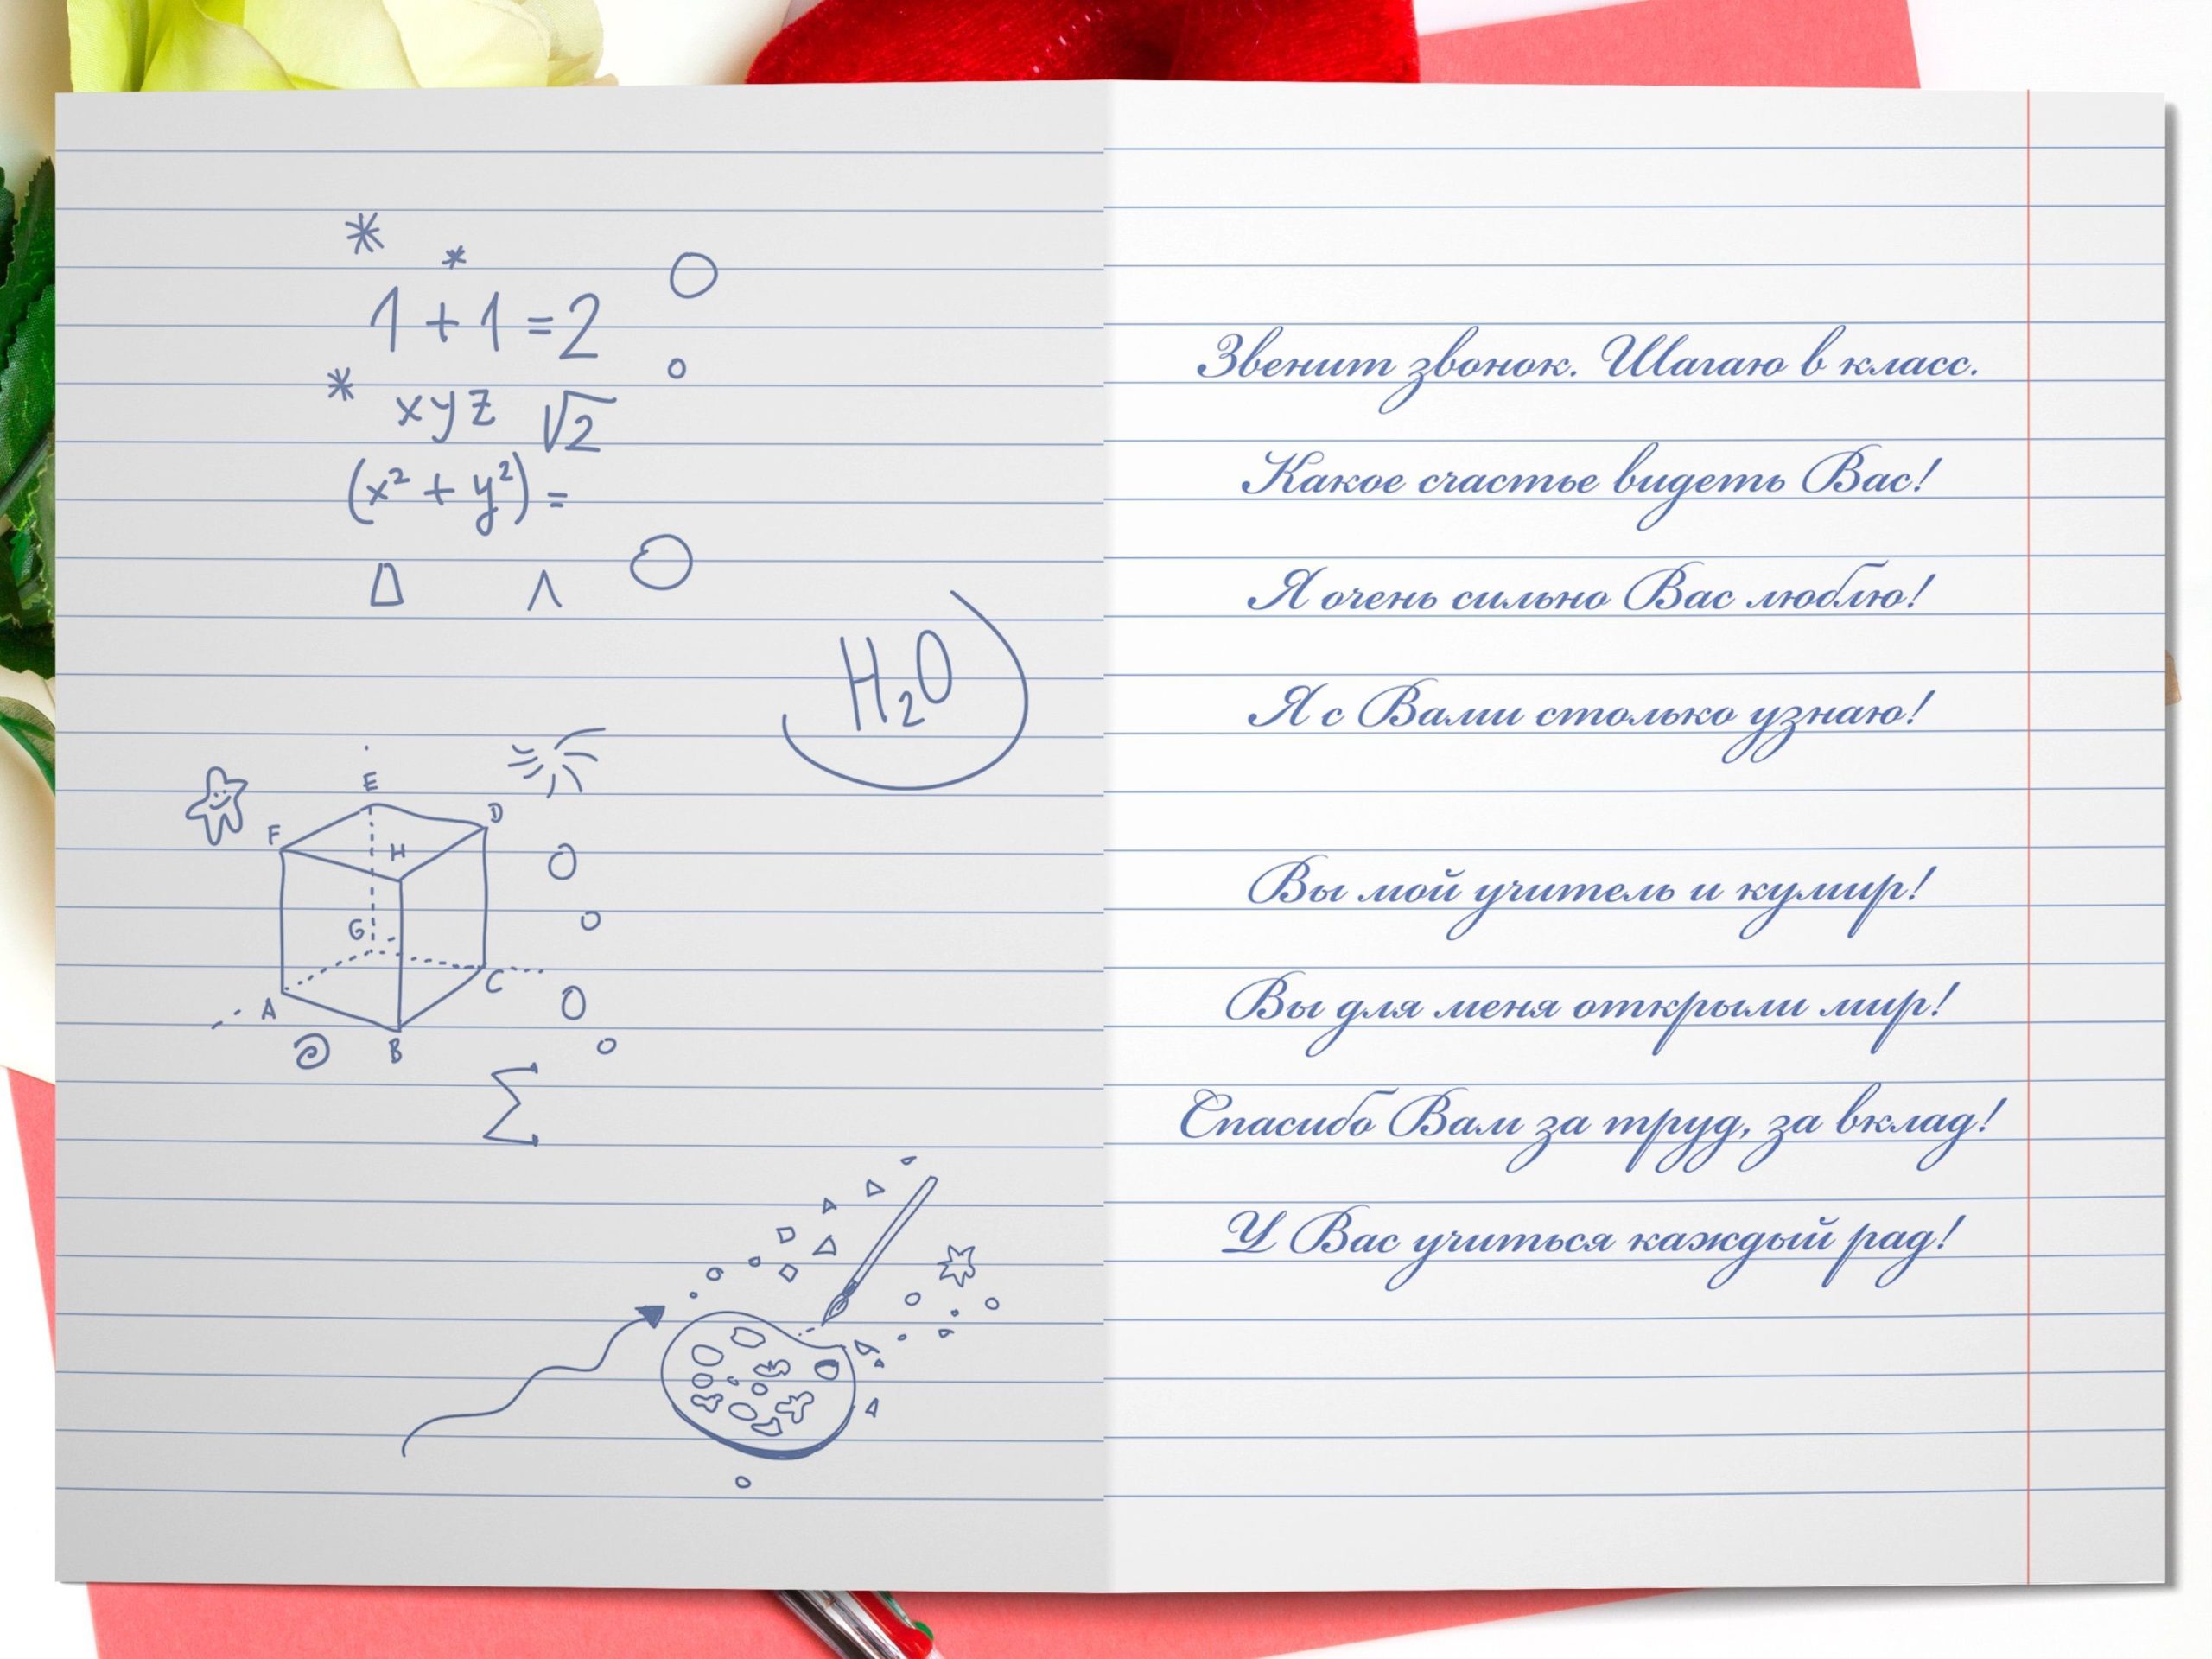 1 + 1 = 2
xyz √2
(x² + y²) =
H₂O
E
D
F
H
G
C
A
B
Σ
Звенит звонок. Шагаю в класс.
Какое счастье видеть Вас!
Я очень сильно Вас люблю!
Я с Вами столько узнаю!
Вы мой учитель и кумир!
Вы для меня открыли мир!
Спасибо Вам за труд, за вклад!
У Вас учиться каждый рад!